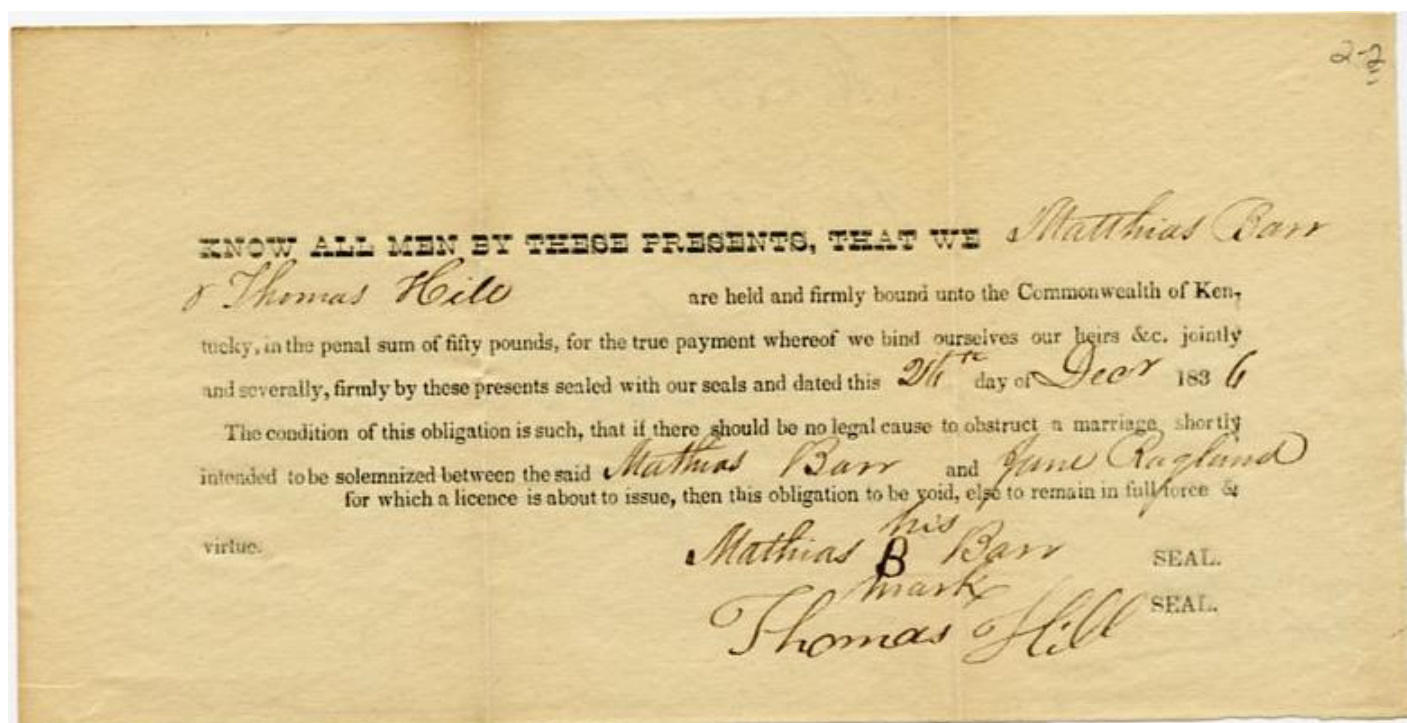 2-2
KNOW ALL MEN BY THESE PRESENTS, THAT WE Matthias Barr
& Thomas Hill are held and firmly bound unto the Commonwealth of Ken-
tucky, in the penal sum of fifty pounds, for the true payment whereof we bind ourselves our heirs &c. jointly
and severally, firmly by these presents sealed with our seals and dated this 24th day of Decr 1836
The condition of this obligation is such, that if there should be no legal cause to obstruct a marriage shortly
intended to be solemnized between the said Mathias Barr and Jane Ragland
for which a licence is about to issue, then this obligation to be void, else to remain in full force &
virtue.
his
Mathias B Barr SEAL.
mark
Thomas Hill SEAL.